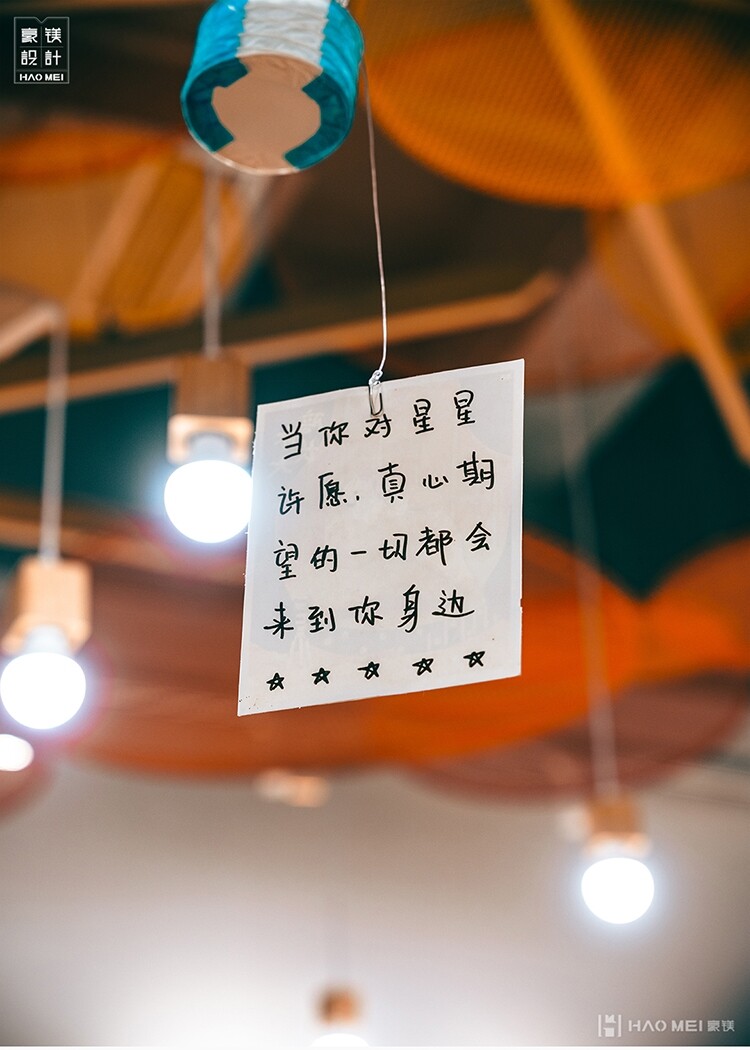 豪镁
設計
HAO MEI
当你对星星
许愿，真心期
望的一切都会
来到你身边
☆ ☆ ☆ ☆ ☆
HAO MEI 豪镁